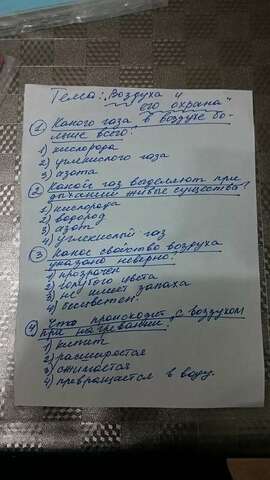 Тема: „Воздуха и
его охрана"
1 Какого газа в воздухе бо-
льше всего?
1) кислорода
2) углекислого газа
3) азота
2 Какой газ выделяют при
дыхании живые существа?
1) кислорода
2) водород
3) азот
4) углекислый газ
3 Какое свойство воздуха
указано неверно?
1) прозрачен
2) голубого цвета
3) не имеет запаха
4) бесцветен
4 Что происходит с воздухом
при нагревании?
1) кипит
2) расширяется
3) сжимается
4) превращается в воду.